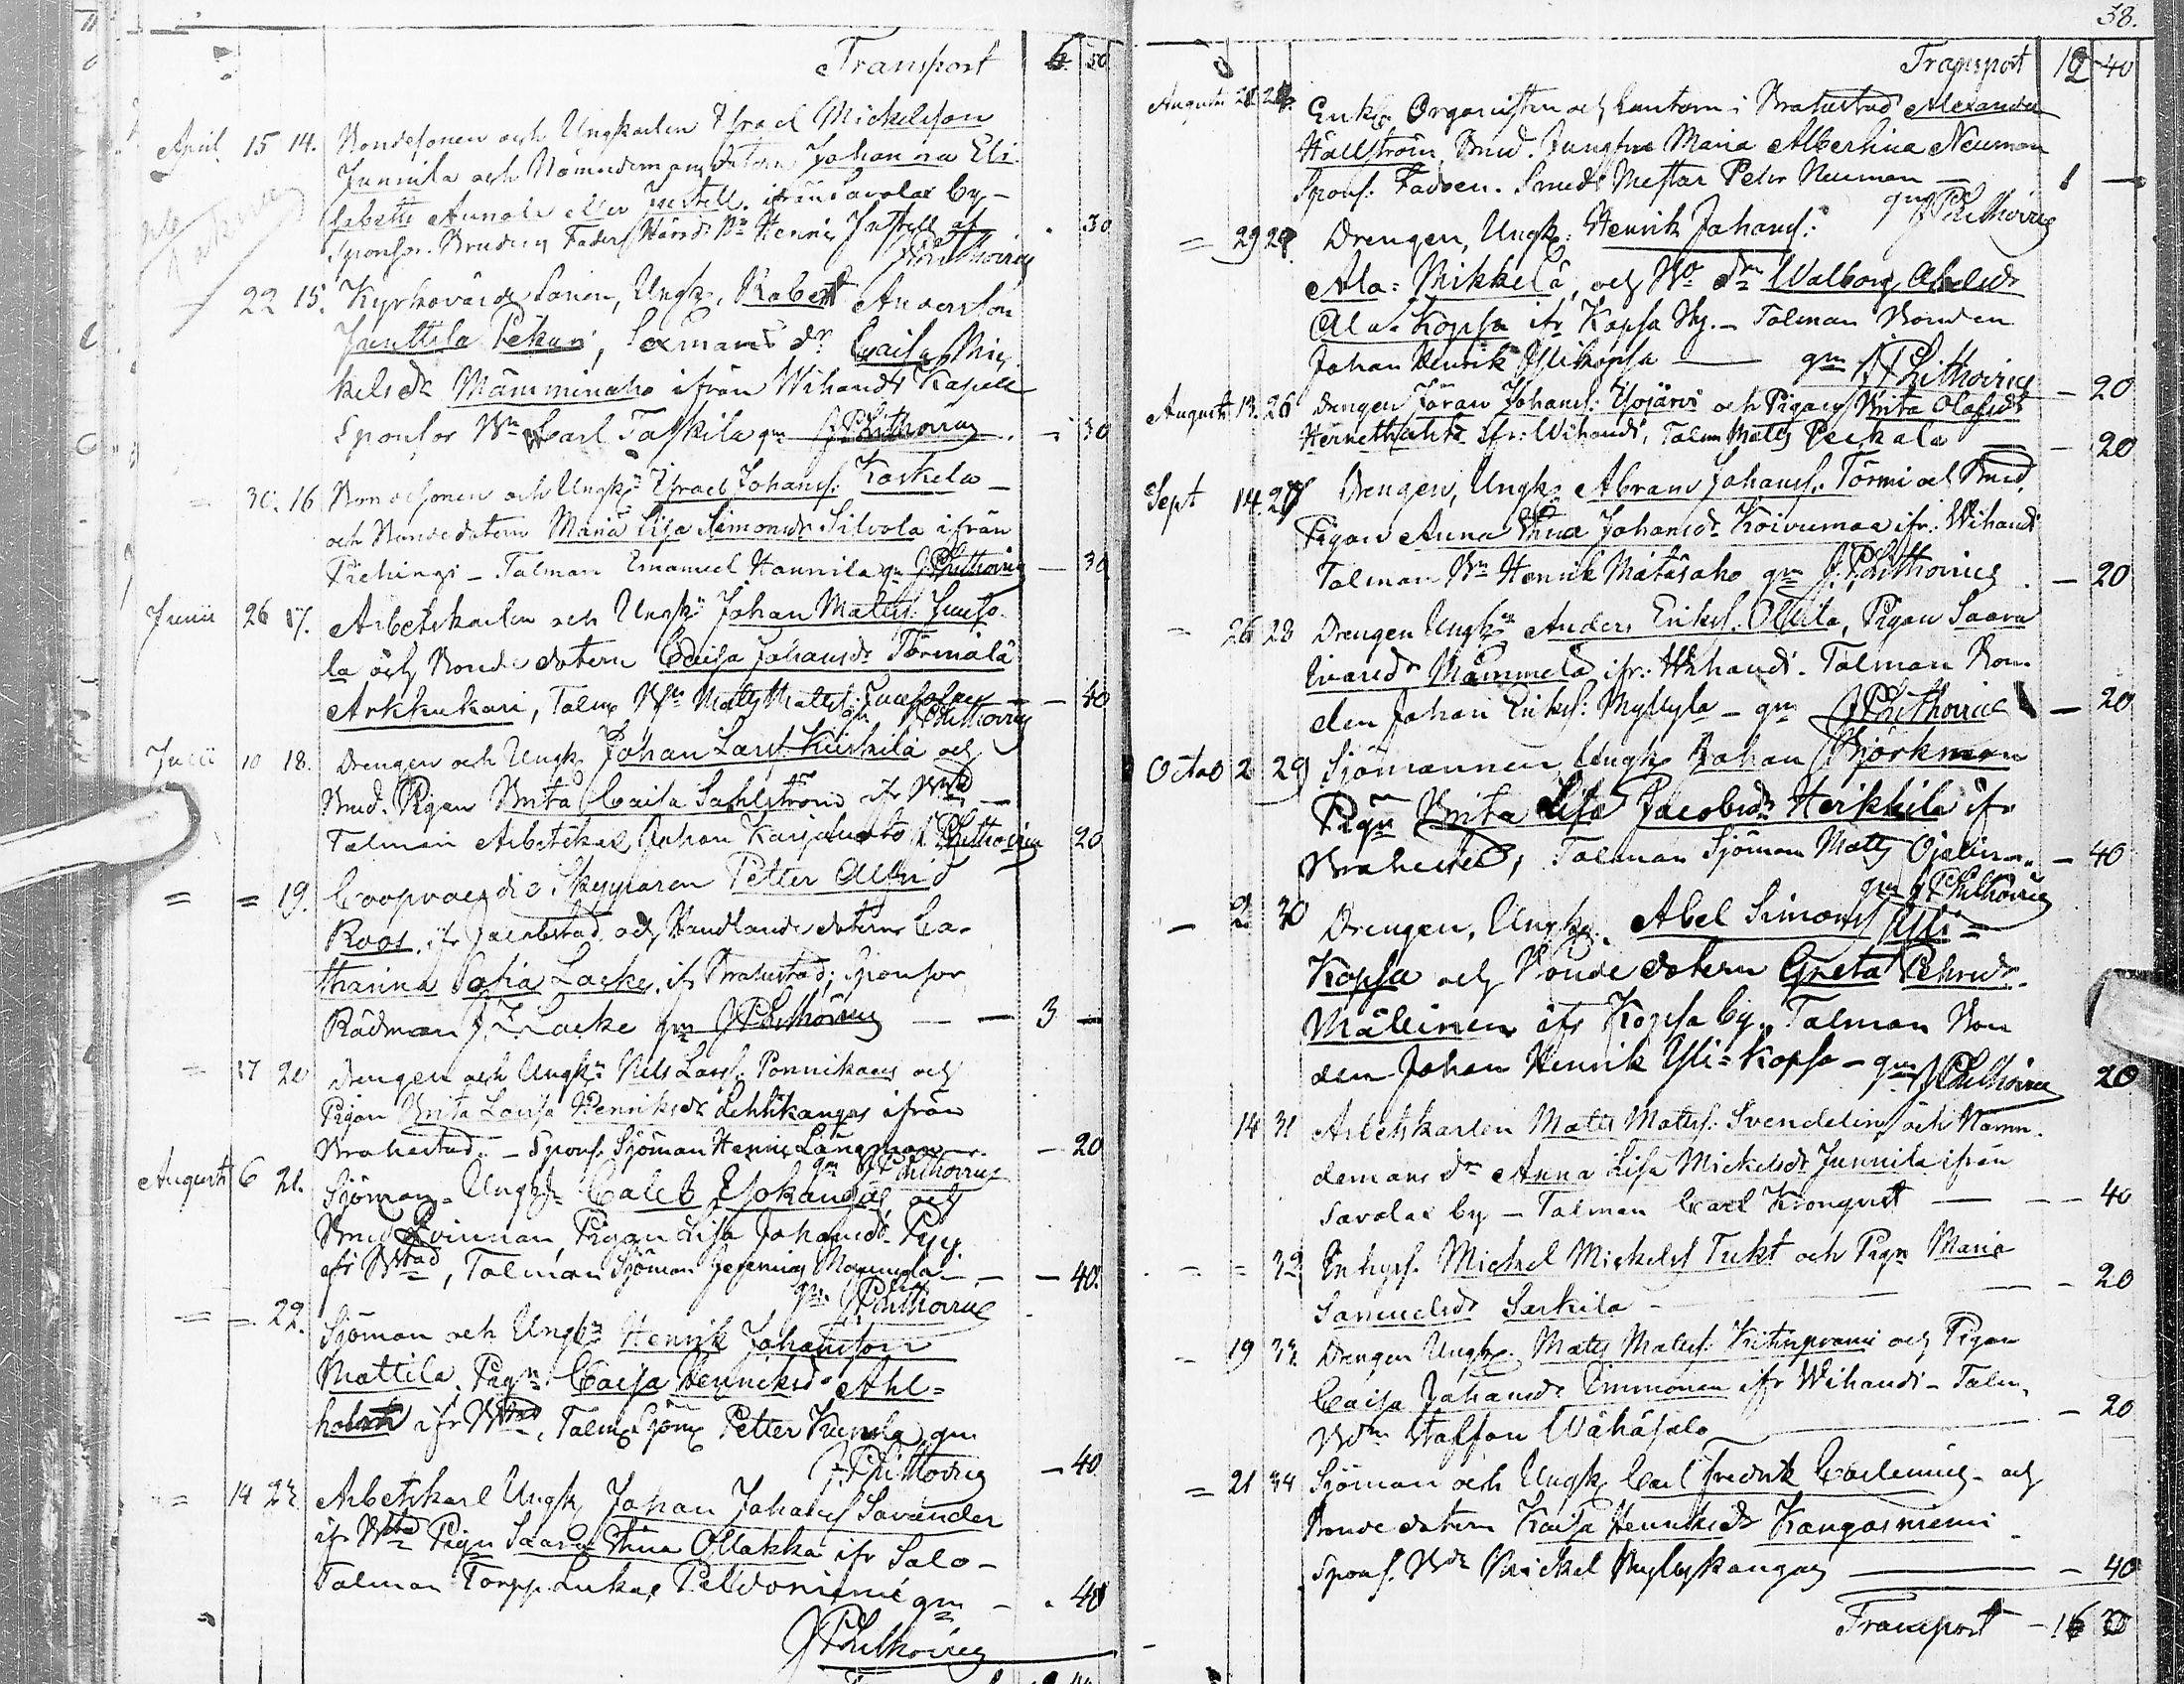 Transport 6. 50
April 15 14. Bondesonen och Ungkarlen Israel Mickelsson
Junnila och Nämndemans dotern Johanna Eli-
sabetha Annala eller Justell ifrån Savalax by -
Sponsor. Brudens Fader Härads Dn Henric Justell - 30
22 15. Kyrkovärds Sonen, Ungk. Robert Andersson
Junttila Pekuri, Sexmans dr Caisa Mic
kelsdr Mämminaho ifrån Wihandi Kapell
Sponsor Bn Carl Taskila gm JPChithovius - 30
= 30. 16 Bondesonen och Ungk: Israel Johanss: Koskela
och Bondedotern Maria Lisa Simonsdr Silvola ifrån
Piehingi - Talman Emanuel Hannila gm JPChithovius - 30
Junii 26 17. Arbetskarlen och Ungk: Johan Matss: Junso-
la och Bonde dotern Caisa Johansdr Törmälä
Arkkukari, Talm Bn Matts Mattss: - 40
gm JPChithovius
Julii 10 18. Drengen och Ungk Johan Larss. Kiiskilä och
Brud. Pigan Brita Caisa Sahlström ifr Bstad -
Talman Arbetskarl Johan Karjaluoto JPChithovius 20
= = 19. Coopvaerdie Skepparen Petter Alfrid
Roos, ifr Jacobstad och Handlande dotern Ca-
tharina Sofia Lacke, ifr Brahestad; Sponsor
Rådman J. Lacke gm JPChithovius - 3 -
= 17 20 Drengen och Ungk: Nils Larss. Ponnikaus och
Pigan Brita Lovisa Henriksdr Lehtikangas ifrån
Brahestad. - Spons. Sjöman Henric Långman - 20
gm JPChithovius
Augusti 6 21. Sjöman - Ungk: Caleb Ylikangas och
Brud Qvinnan, Pigan Lisa Johansdr Pyy
ifr Bstad, Talman Sjöman Jeremias - 40.
gm JPChithovius
= = 22. Sjöman och Ungk: Henrik Johansson
Mattila, Pign Caisa Henricksdr Ahl=
holm ifr Bstad, Talm Sjöm Petter Kumla gm
JPChithovius - 40
= 14 23. Arbetskarl Ungk Johan Johanss Savander
ifr Bstad Pign Saara Stina Ollakka ifr Salo -
Talman Torpp. Lukas Peldoniemi gm - 40
JPChithovius
38.
Transport 12 40
Augusti 24. Enkl. Organisten och Cantorn i Brahestad Alexander
Hällström, Brud. Jungfru Maria Albertina Neuman
Spons. Fadren. Smeds Mestar Petter Neuman - 1 -
gm JPChithovius
= 29 Drengen, Ungk: Henrik Johanss:
Ala=Mikkelä, och Bo dr Walborg Abelsdr
Ala-Kopsa ifr Kopsa By. - Talman Bonden
Johan Henrik Ylikopsa - gm JPChithovius - 20
Augusti 13. 26 Drengen Jöran Johanss: Ylojärvi och Pigan Brita Olofsdr
ifr: Wihandi, Talm Matts Peckala - 20
Sept 14 27 Drengen, Ungk: Abram Johanss: Törmi och Brud.
Pigan Anna Stina Johansdr Koivumaa ifr: Wihandi
Talman Bn Henrik Matasaho gm JPChithovius - 20
- 26 28 Drengen Ungk: Anders Erikss: Ollila, Pigan Saara
Ivarsdr Mämmelä ifr: Wihandi. Talman Bon-
den Johan Erikss: Myllylä - gm JPChithovius - 20
Octob 2 29 Sjömannen Ungk Johan Björkman
Pign Brita Lisa Jacobsdr Heikkilä ifr
Brahestad, Talman Sjöman Matts - 40
gm JPChithovius
- 2 30 Drengen, Ungk. Abel Simonss Yli=
Kopsa och Bonde dotern Greta Pehrsdr
Mälinen ifr Kopsa by, Talman Bon
den Johan Henrik Yli=Kopsa - gm JPChithovius 20
14 31 Arbetskarlen Matts Matss: Svendelin och Nämn-
demans dr Anna Lisa Mickelsdr Junnila ifrån
Savalax by - Talman Carl Kronqvist - - 40
- = 32 Inhys. Mickel Mickelss Tukt och Pign Maria
Samuelsdr Sarkila - - 20
- 19 33. Drengen Ungk. Matts Matss: och Pigan
Caisa Johansdr Immonen ifr Wihandi - Talm.
Bdn Staffan Wähäsalo - 20
= 21 34 Sjöman och Ungk Carl Fredrik Carlenius och
Bonde dotern Kaisa Henriksdr Kangasniemi
Spons. Bdn Mickel Myllykangas - 40
Transport - 16